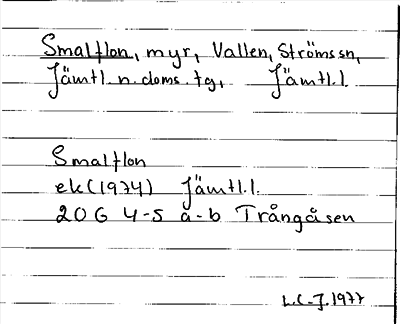 Smalflon, myr, Vallen, Strömssn,
Jämtl. n. doms. tg, Jämtl. l.
Smalflon
ek (1974) Jämtl. l.
20 G 4-5 a-b Trångåsen
L.C-J. 1977